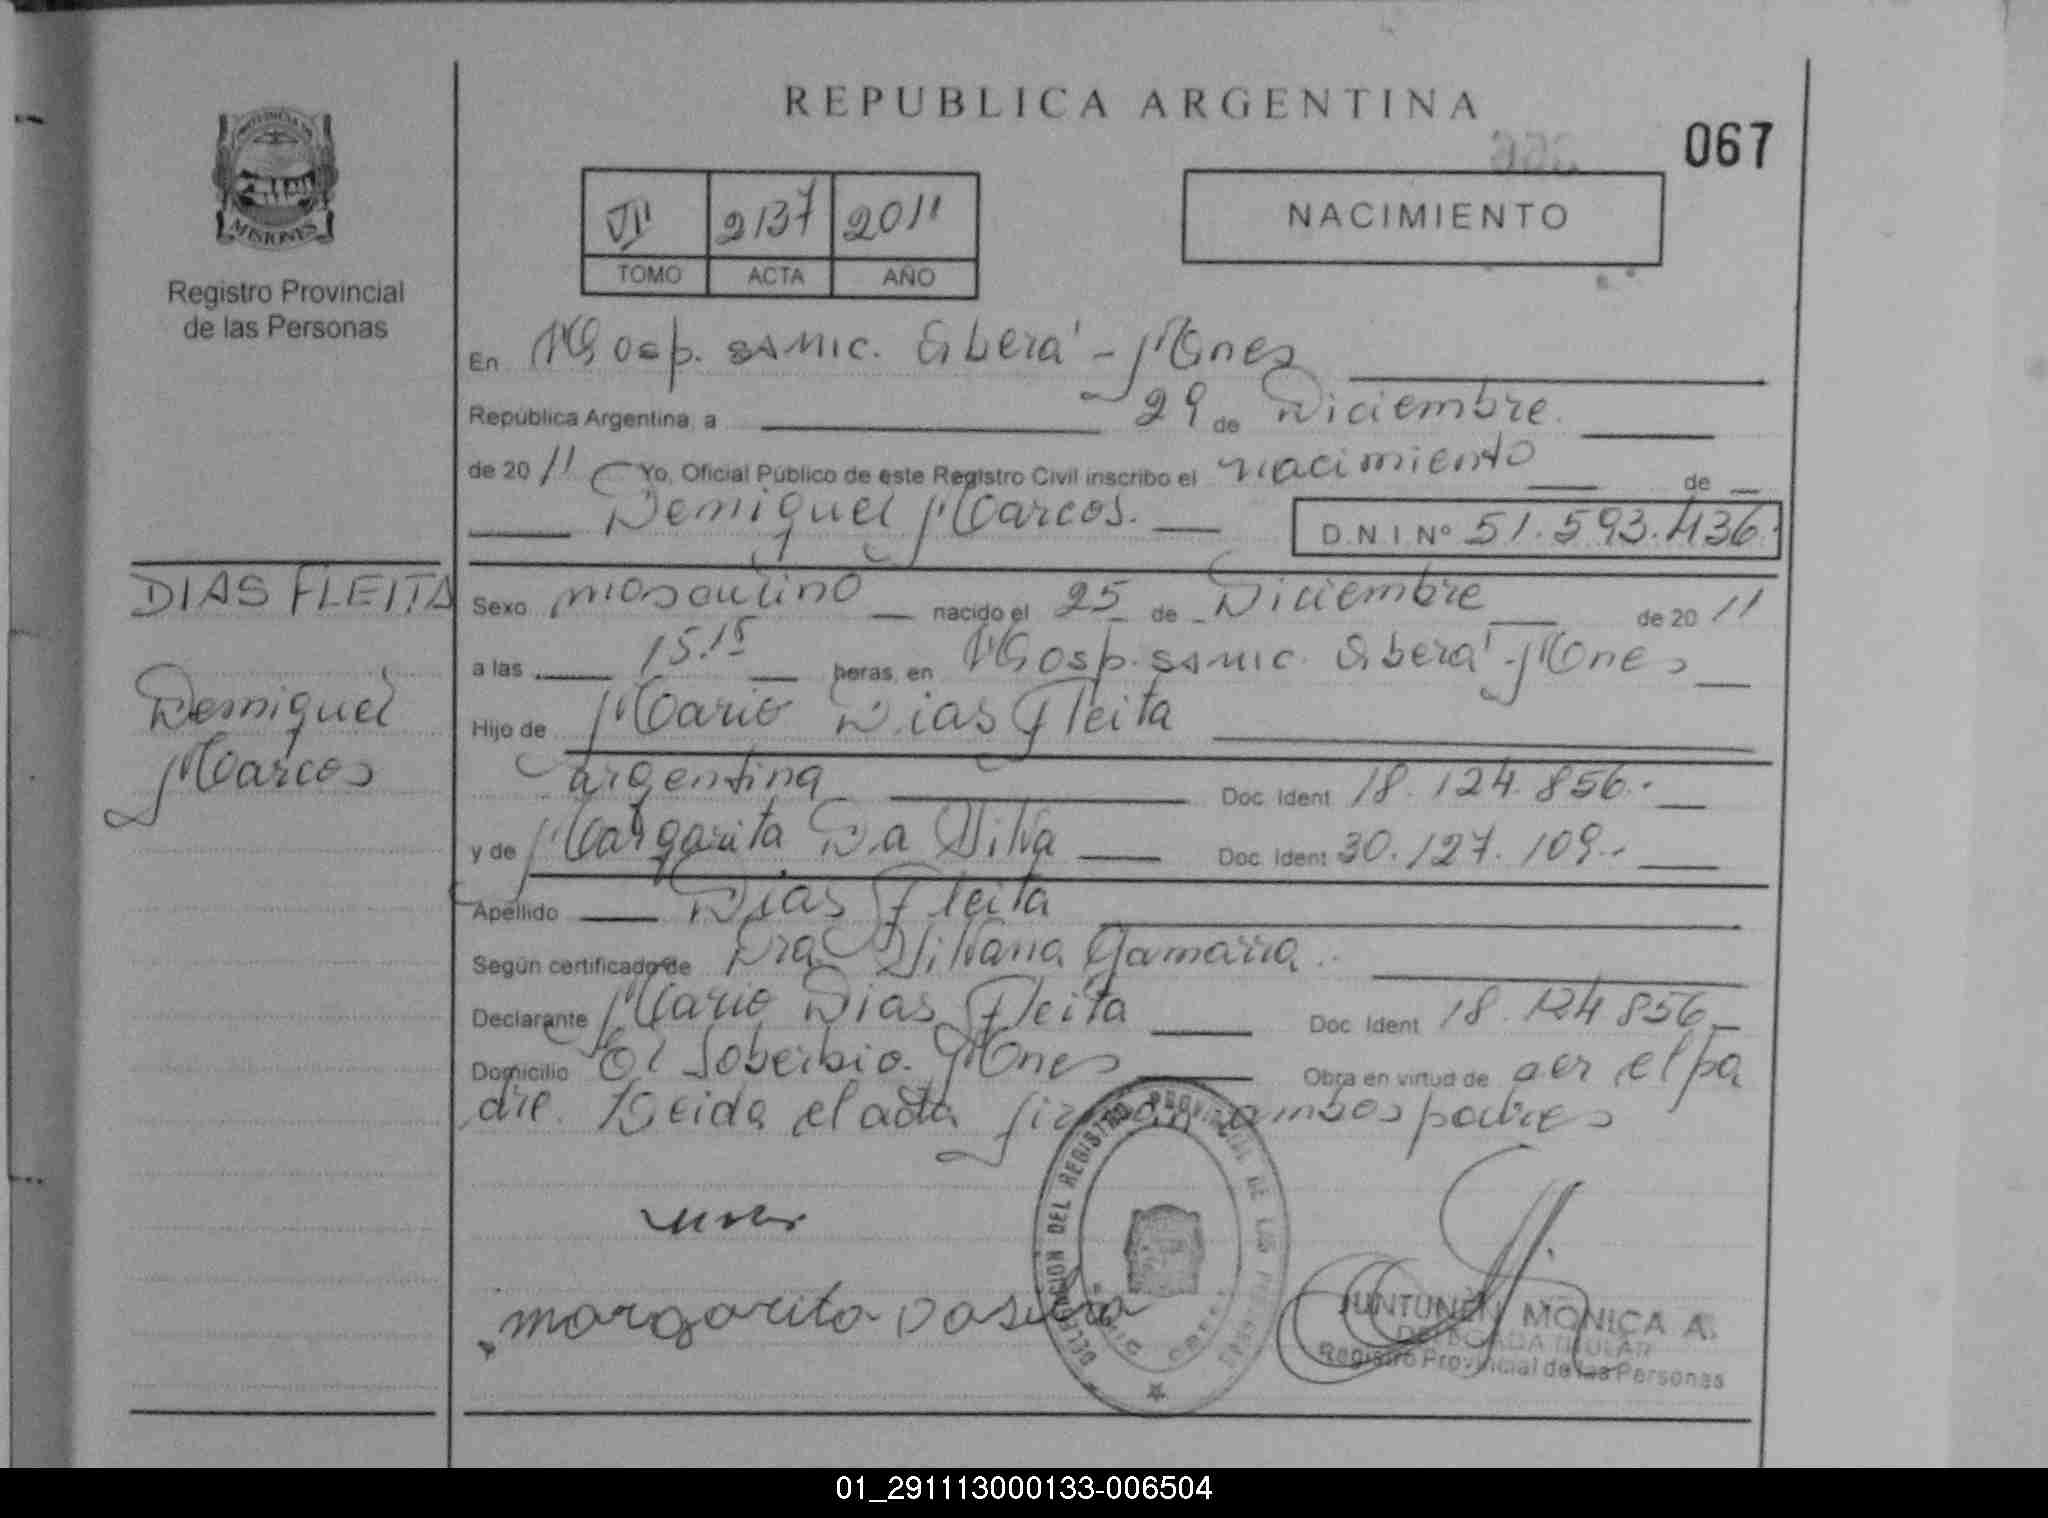 REPUBLICA ARGENTINA
067
MISIONES
Registro Provincial
de las Personas
VII 2137 2011
TOMO ACTA AÑO
NACIMIENTO
En Hosp. SAMIC. Oberá - Mnes
República Argentina, a 29 de Diciembre.
de 20 11 Yo, Oficial Público de este Registro Civil inscribo el nacimiento de
Demiquel Marcos.
D.N.I Nº 51.593.436.
DIAS FLEITA
Demiquel
Marcos
Sexo masculino nacido el 25 de Diciembre de 20 11
a las 15.15 horas, en Hosp. SAMIC. Oberá - Mnes
Hijo de Mario Dias Fleita
argentina Doc. Ident 18.124.856.-
y de Margarita Da Silva Doc. Ident 30.127.109.-
Apellido Dias Fleita
Según certificado de Dra Silvana Gamarra.
Declarante Mario Dias Fleita Doc. Ident 18.124.856
Domicilio El Soberbio. Mnes Obra en virtud de ser el pa
dre. Leida el acta firman ambos padres
margarita Dasilva
DELEGACION DEL REGISTRO PROVINCIAL DE LAS PERSONAS
JUNTUNEN MONICA A.
DELEGADA TITULAR
Registro Provincial de las Personas
01_291113000133-006504